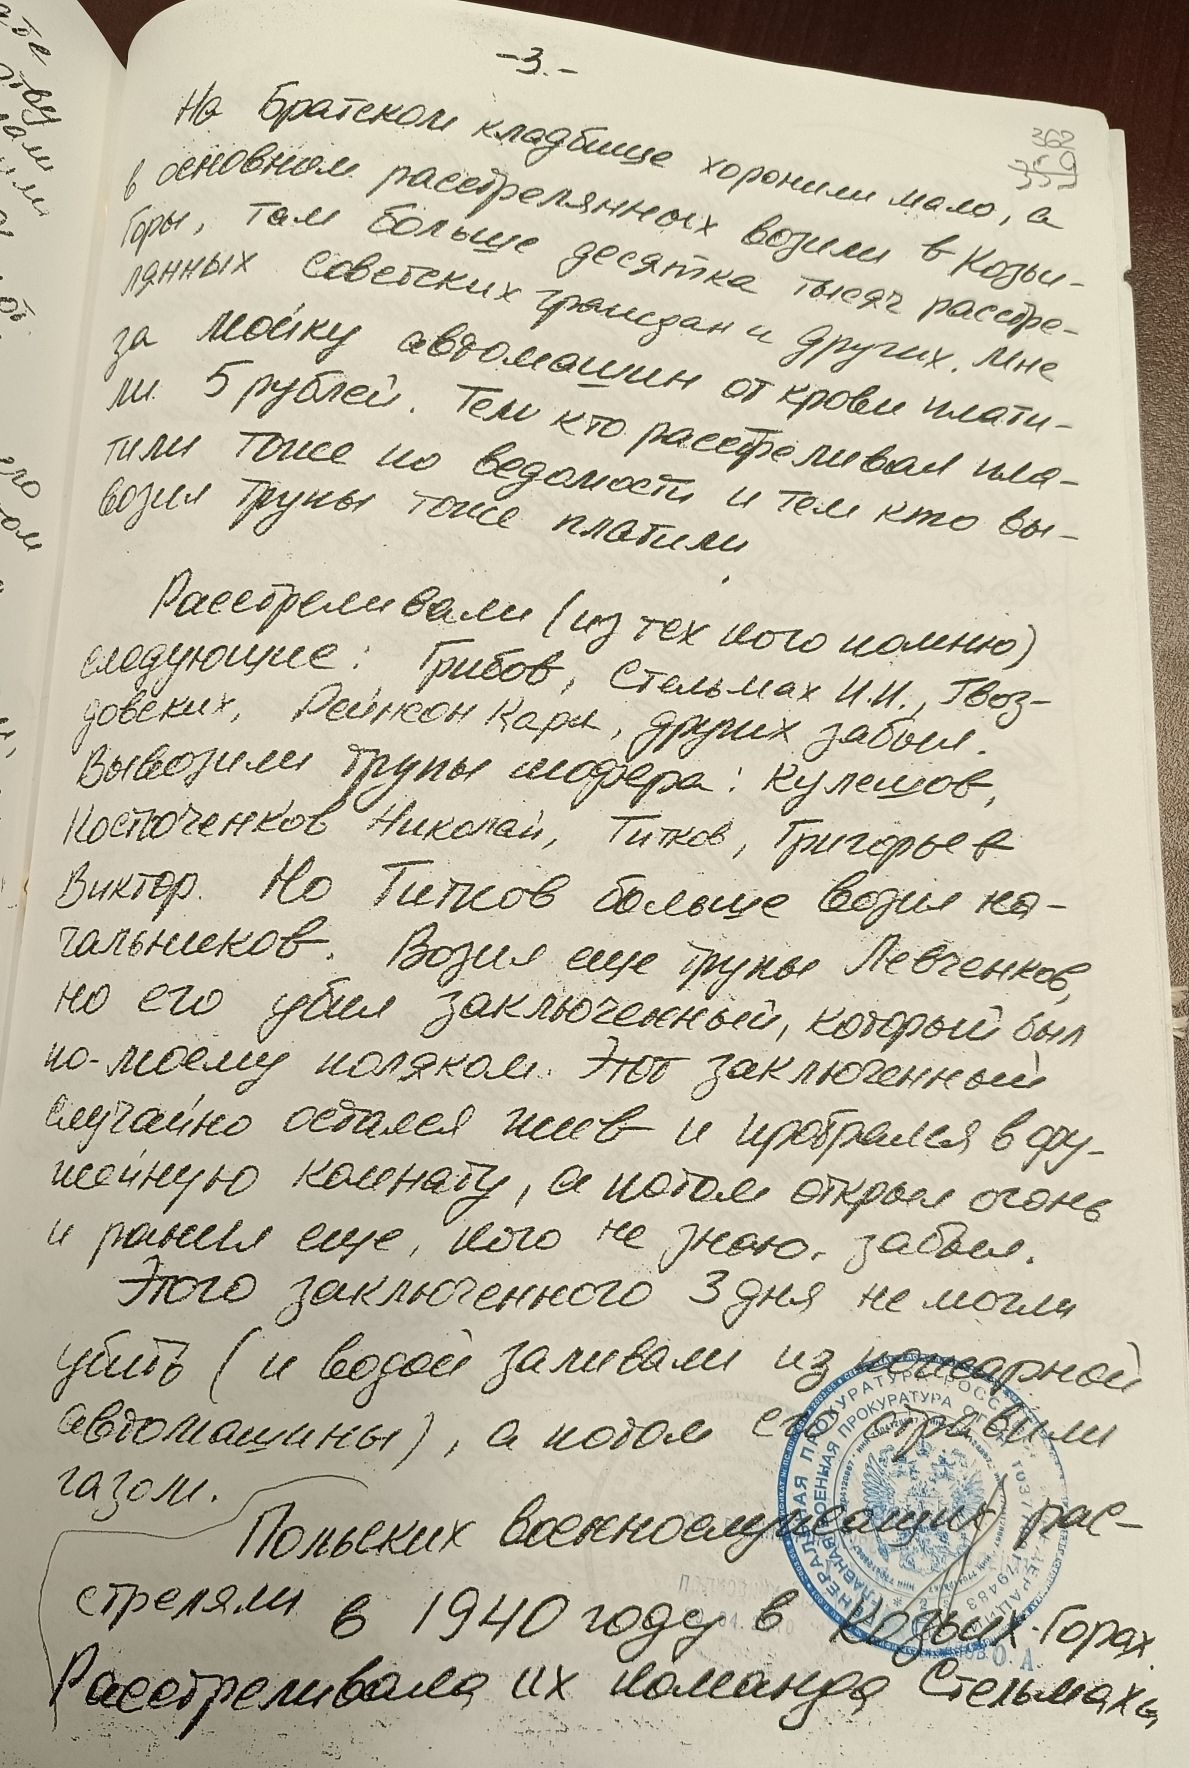 -3.-
362
359
На Братском кладбище хоронили мало, а
в основном расстрелянных возили в Козьи-
Горы, там больше десятка тысяч расстре-
лянных советских граждан и других. Мне
за мойку автомашин от крови плати-
ли 5 рублей. Тем кто расстреливал пла-
тили тоже по ведомости и тем кто вы-
возил трупы тоже платили
Расстреливали (из тех кого помню)
следующие: Грибов, Стельмах И.И., Гвоз-
довских, Рейнсон Карл, других забыл.
Вывозили трупы шофера: Кулешов,
Костюченков Николай, Титков, Григорьев
Виктор. Но Титков больше возил на-
чальников. Возил еще трупы Левченков,
но его убил заключенный, который был
по-моему поляком. Этот заключенный
случайно остался жив и пробрался в ру-
жейную комнату, а потом открыл огонь
и ранил еще, кого не знаю, забыл.
Этого заключенного 3 дня не могли
убить (и водой заливали из пожарной
автомашины), а потом его отравили
газом.
Польских военнослужащих рас-
стреляли в 1940 году в Козьих-Горах.
Расстреливала их команда Стельмаха,